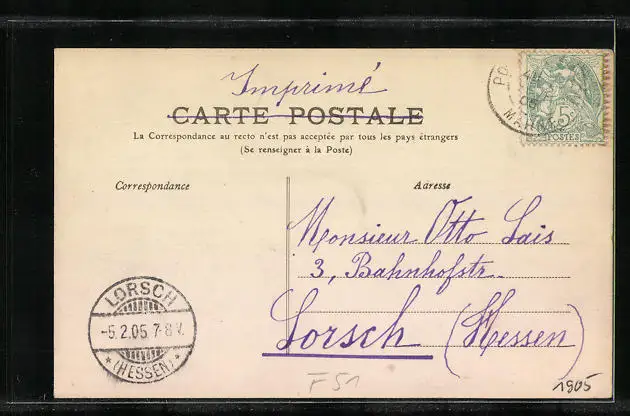 Imprimé
CARTE POSTALE
La Correspondance au recto n'est pas acceptée par tous les pays étrangers
(Se renseigner à la Poste)
5c
POSTES
MARNE
Correspondance
Adresse
Monsieur Otto Lais
3, Bahnhofstr.
Lorsch (Hessen)
LORSCH
-5.2.05.7-8V.
* (HESSEN) *
F51
1905